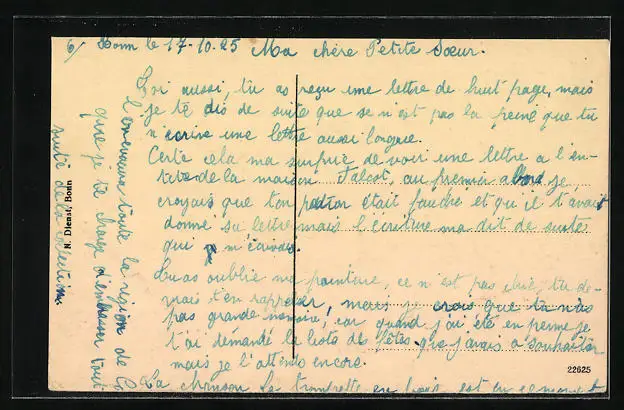 6/ Bonn le 17-10-25 Ma chère Petite Sœur.
Toi aussi, tu as reçu une lettre de huit page, mais
je te dis de suite que se n'est pas la peine que tu
n'écrive une lettre aussi longue.
Certe cela ma surprie de voir une lettre a l'en-
tête de la maison Talcot, au premier abord je
croyais que ton patron était fauché et qu'il t'avait
donné sa lettre mais l'écriture ma dit de suite
qui m'écrivais.
Tu as oublié ma pointure, ce n'est pas chic, tu de-
vrais t'en rappeler, mais je crois que tu n'as
pas grande memoire, car quand j'ai été en perme je
t'ai démandé la liste des fêtes que j'avais a souhaiter
mais je l'attends encore.
La chanson La trompette en bois est en ce moment
toute la région de
que je te charge d'embrasser tout
suite de la collection
N. Dienst, Bonn
22625